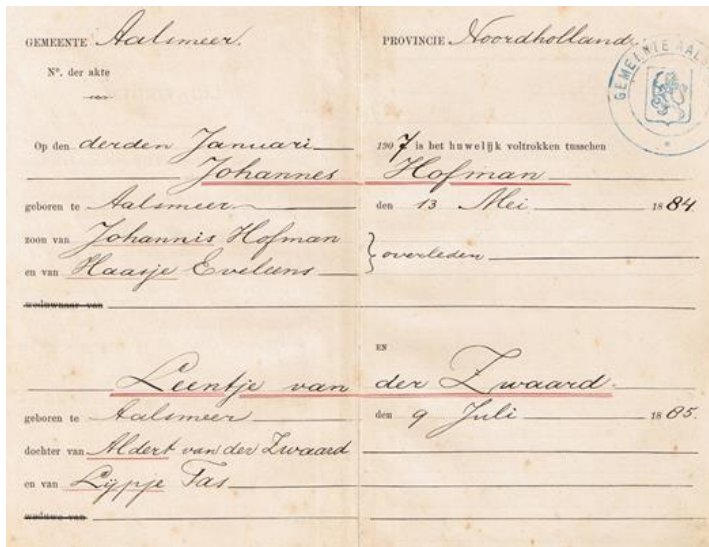 GEMEENTE Aalsmeer. PROVINCIE Noordholland
GEMEENTE AALS
Nº. der akte
Op den derden Januari 1907 is het huwelijk voltrokken tusschen
Johannes Hofman
geboren te Aalsmeer den 13 Mei 1884.
zoon van Johannis Hofman
en van Haasje Eveleens } overleden
weduwnaar van
EN
Leentje van der Zwaard.
geboren te Aalsmeer den 9 Juli 1885.
dochter van Aldert van der Zwaard
en van Lijpje Tas
weduwe van